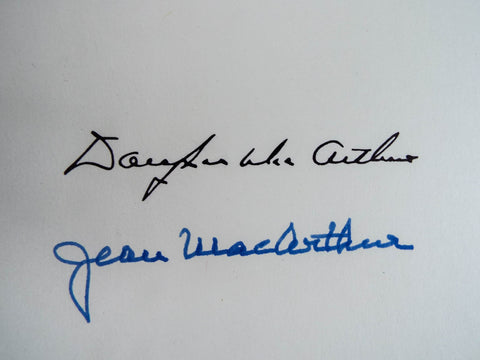 Douglas MacArthur
Jean MacArthur